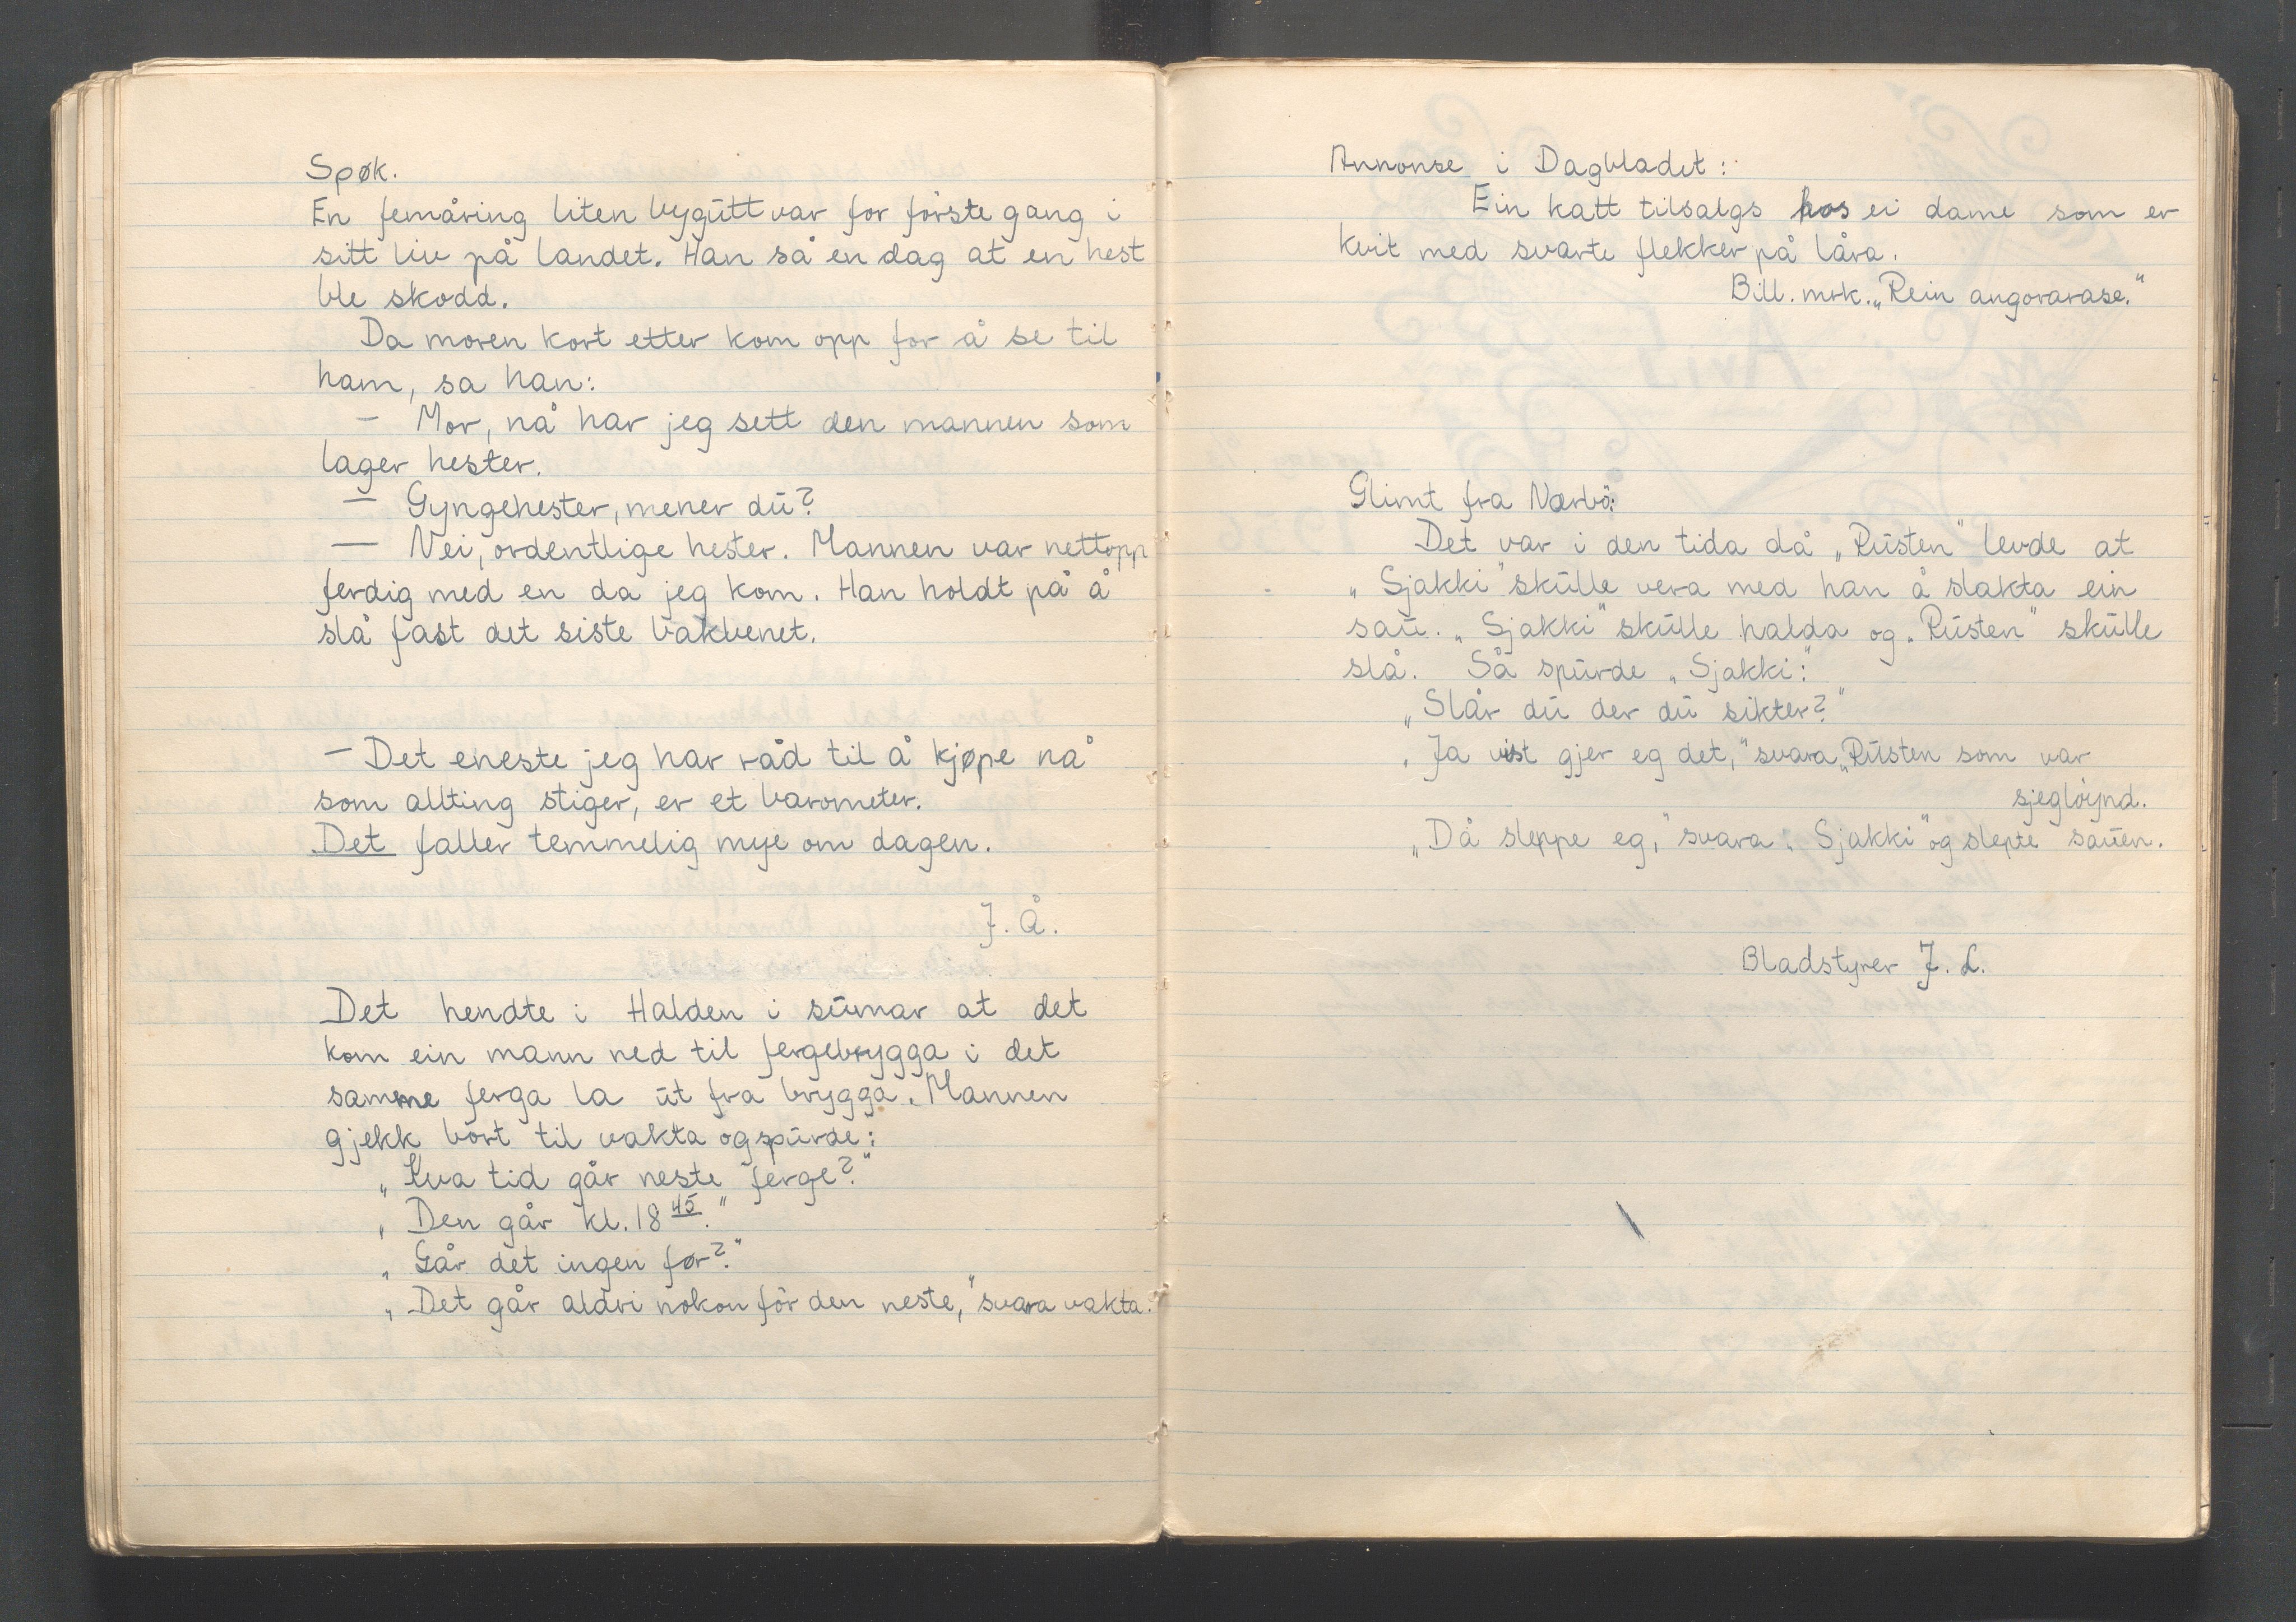 Spøk.
En femåring liten bygutt var for förste gang i
sitt liv på landet. Han så en dag at en hest
ble skodd.
Da moren kort etter kom opp for å se til
ham, sa han:
— Mor, nå har jeg sett den mannen som
lager hester.
— Gyngehester, mener du?
— Nei, ordentlige hester. Mannen var nettopp
ferdig med en da jeg kom. Han holdt på å
slå fast det siste bakbenet.
— Det eneste jeg har råd til å kjøpe nå
som allting stiger, er et barometer.
Det faller temmelig mye om dagen.
J. Å.
Det hendte i Halden i sumar at det
kom ein mann ned til fergebrygga i det
samme ferga la ut fra brygga. Mannen
gjekk bort til vakta og spurde:
„Kva tid går neste ferge?"
„Den går kl. 18 45."
„Går det ingen før?"
„Det går aldri nokon för den neste," svara vakta.
Annonse i Dagbladet:
Ein katt tilsalgs hos ei dame som er
kvit med svarte flekker på låra.
Bill. mrk. „Rein angorarase."
Glimt fra Nærbö:
Det var i den tida då „Rusten" levde at
„Sjakki" skulle vera med han å slakta ein
sau. „Sjakki" skulle halda og „Rusten" skulle
slå. Så spurde „Sjakki":
„Slår du der du sikter?"
„Ja vist gjer eg det," svara „Rusten som var
sjegløynd.
„Då sleppe eg," svara „Sjakki" og slepte sauen.
Bladstyrer J. L.